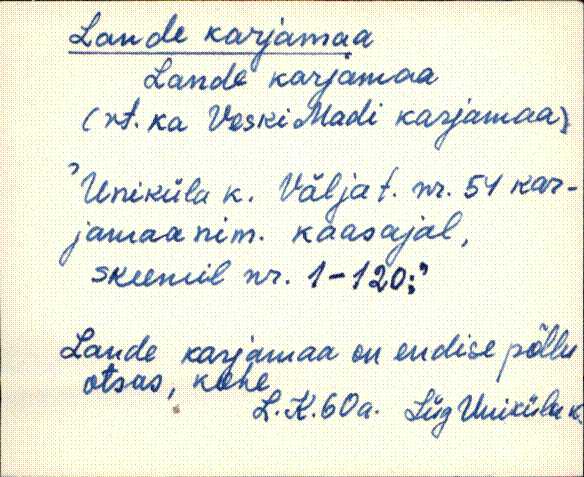 Lande karjamaa
Lande karjamaa
(vt. ka Veski Madi karjamaa)
"Uniküla k. Välja t. nr. 51 kar-
jamaa nim. kaasajal,
skeemil nr. 1-120;"
Lande karjamaa on endise põllu
otsas, kohe
L.K. 60 a. Lüg Uniküla k.